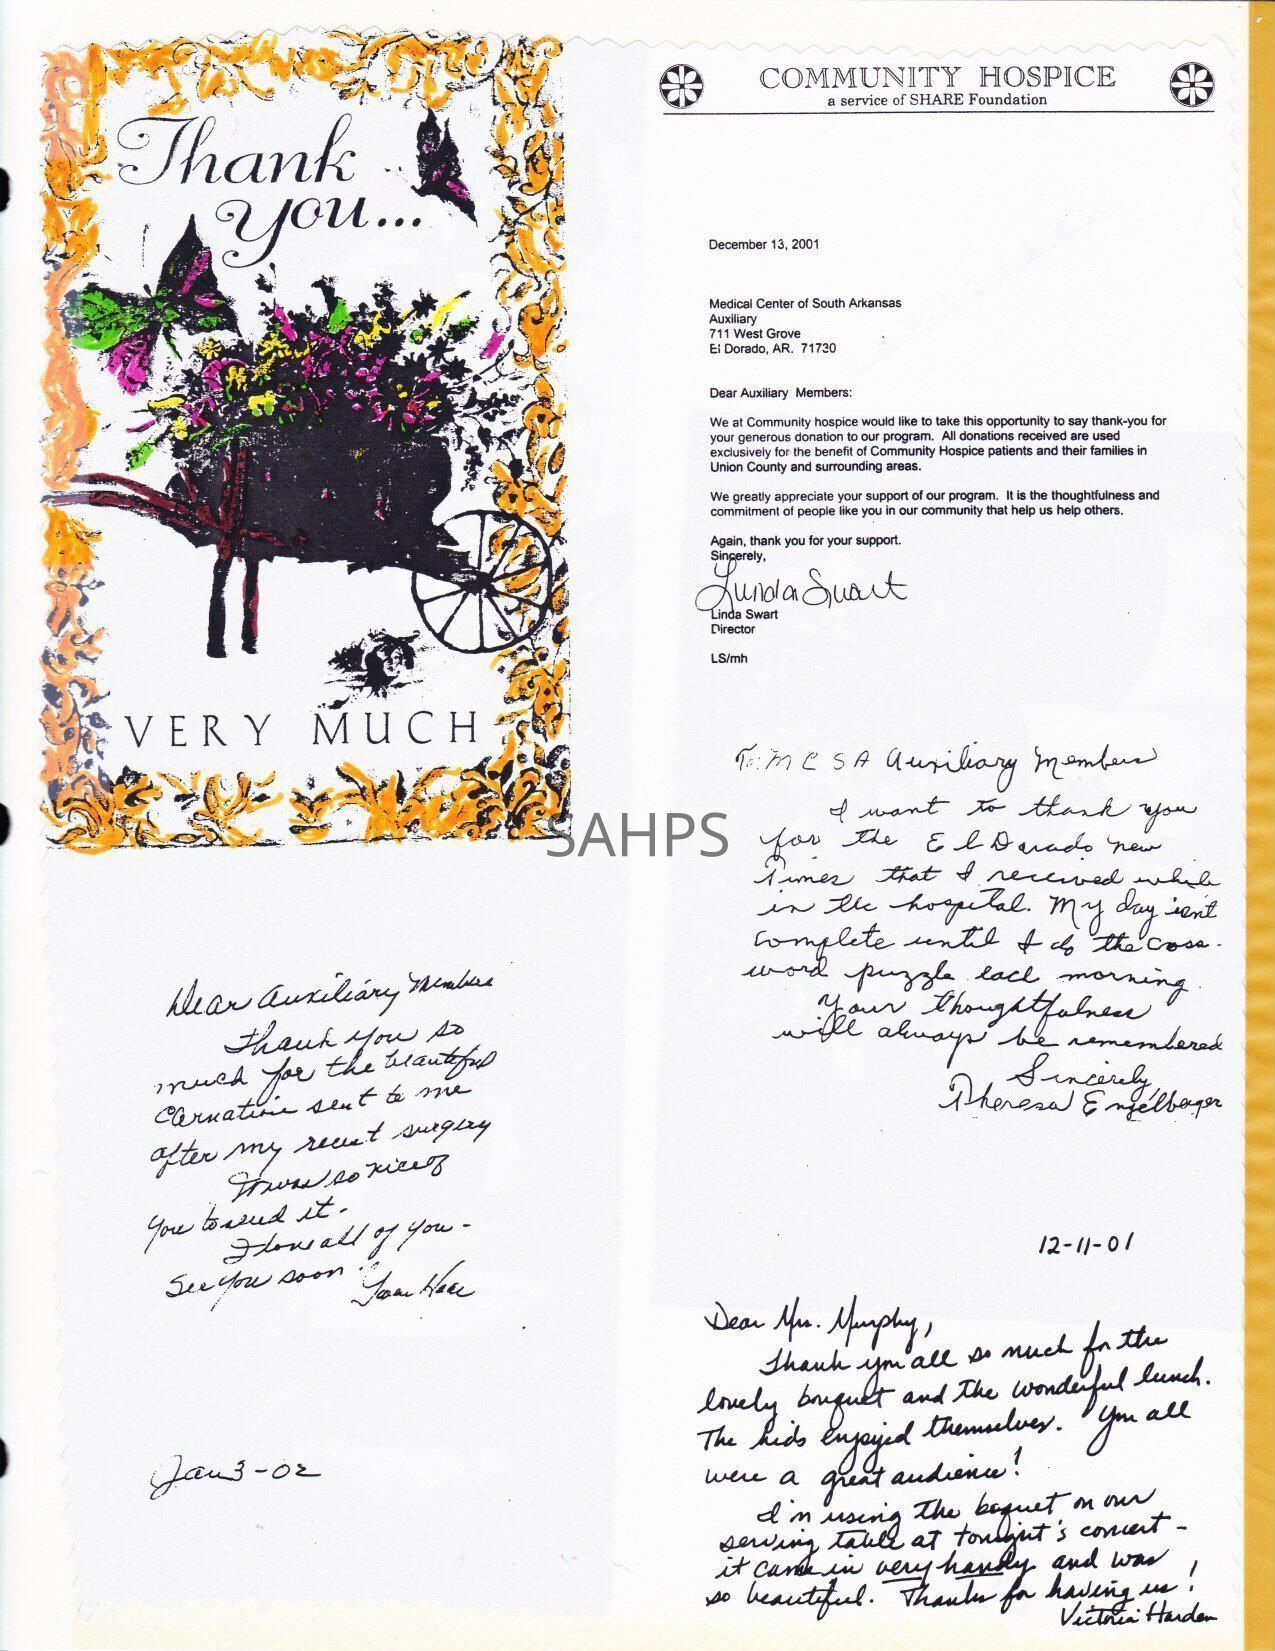 Thank
you...
VERY MUCH
COMMUNITY HOSPICE
a service of SHARE Foundation
December 13, 2001
Medical Center of South Arkansas
Auxiliary
711 West Grove
El Dorado, AR. 71730
Dear Auxiliary Members:
We at Community hospice would like to take this opportunity to say thank-you for
your generous donation to our program. All donations received are used
exclusively for the benefit of Community Hospice patients and their families in
Union County and surrounding areas.
We greatly appreciate your support of our program. It is the thoughtfulness and
commitment of people like you in our community that help us help others.
Again, thank you for your support.
Sincerely,
Linda Swart
Linda Swart
Director
LS/mh
To: MCSA Auxiliary Members
I want to thank you
for the El Dorado new
Times that I received while
in the hospital. My day isn't
complete until I do the cross-
word puzzle each morning.
Your thoughtfulness
will always be remembered
Sincerely,
Theresa Engelberger
SAHPS
Dear Auxiliary Members
Thank you so
much for the beautiful
Carnation sent to me
after my recent surgery
It was so nice of
you to send it.
I love all of you -
See you soon.
Jan 3-02
12-11-01
Dear Mrs. Murphy,
Thank you all so much for the
lovely bouquet and the wonderful lunch.
The kids enjoyed themselves. You all
were a great audience!
I'm using the boquet on our
serving table at tonight's concert -
it came in very handy and was
so beautiful. Thanks for having us!
Victoria Harden